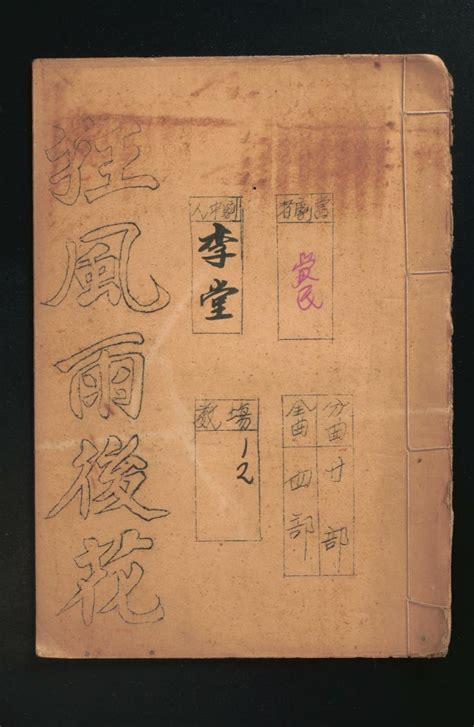 書劇者
民
劇中人
李堂
分曲廿部
全曲四部
場數
12
狂風雨後花